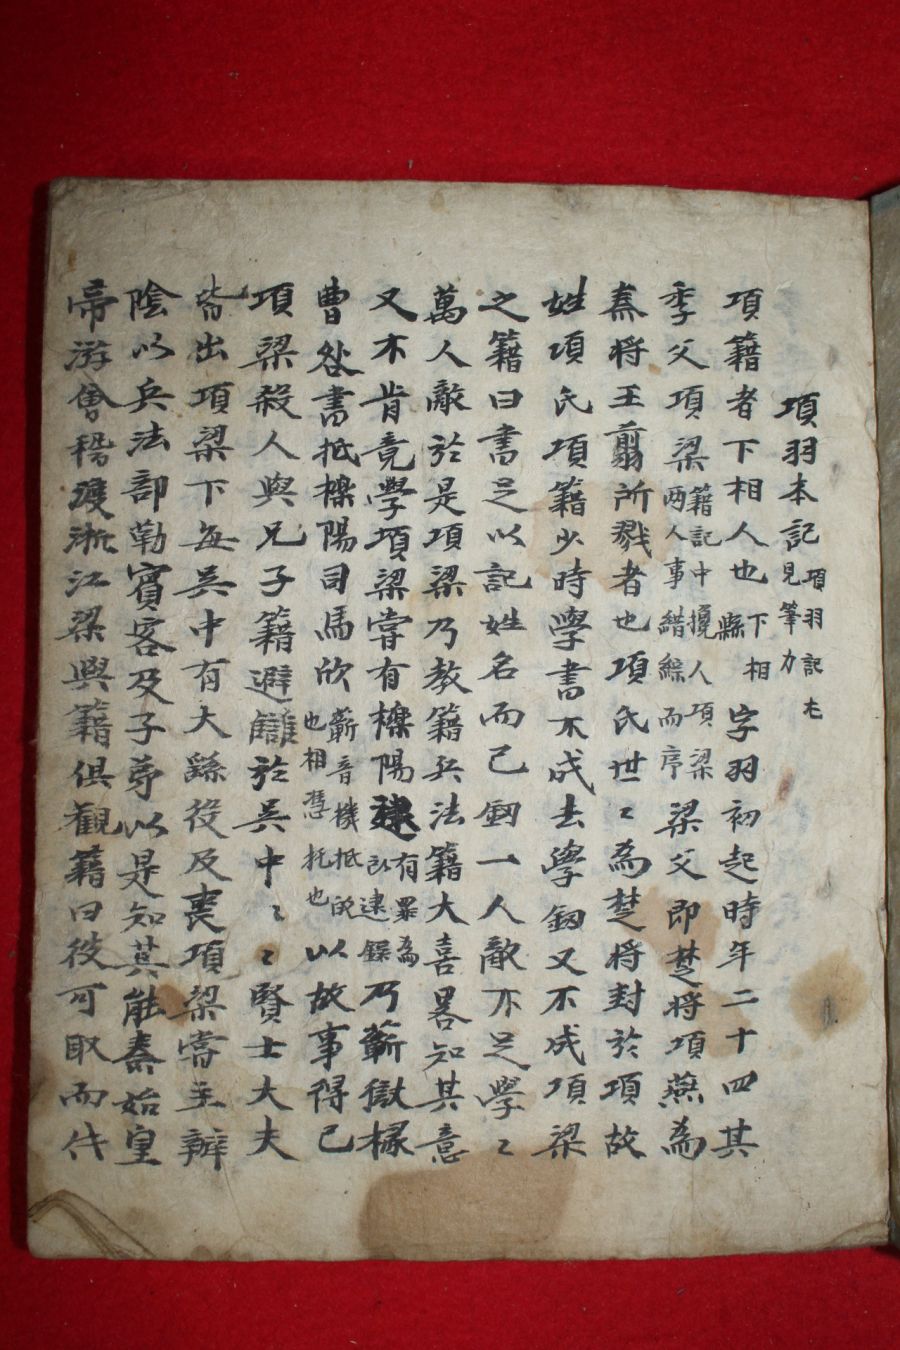 項羽本記 項羽記尤見筆力
項籍者下相人也 下相縣 字羽初起時年二十四其
季父項梁 籍記中攙人項梁兩人事結綜而序 梁父即楚將項燕為
秦將王翦所戮者也項氏世〻為楚將封於項故
姓項氏項籍少時學書不成去學釼又不成項梁
之籍曰書足以記姓名而已釼一人敵不足學〻
萬人敵於是項梁乃教籍兵法籍大喜畧知其意
又不肯竟學項梁嘗有櫟陽逮 有罪為所逮錄 乃蘄獄掾
曹咎書抵櫟陽司馬欣 蘄音機抵 也相憑托也 以故事得已
項梁殺人與兄子籍避讎於吳中〻〻賢士大夫
皆出項梁下每吳中有大繇役及喪項梁嘗主辦
陰以兵法部勒賓客及子弟以是知其能秦始皇
帝游會稽渡浙江梁與籍俱觀籍曰彼可取而代